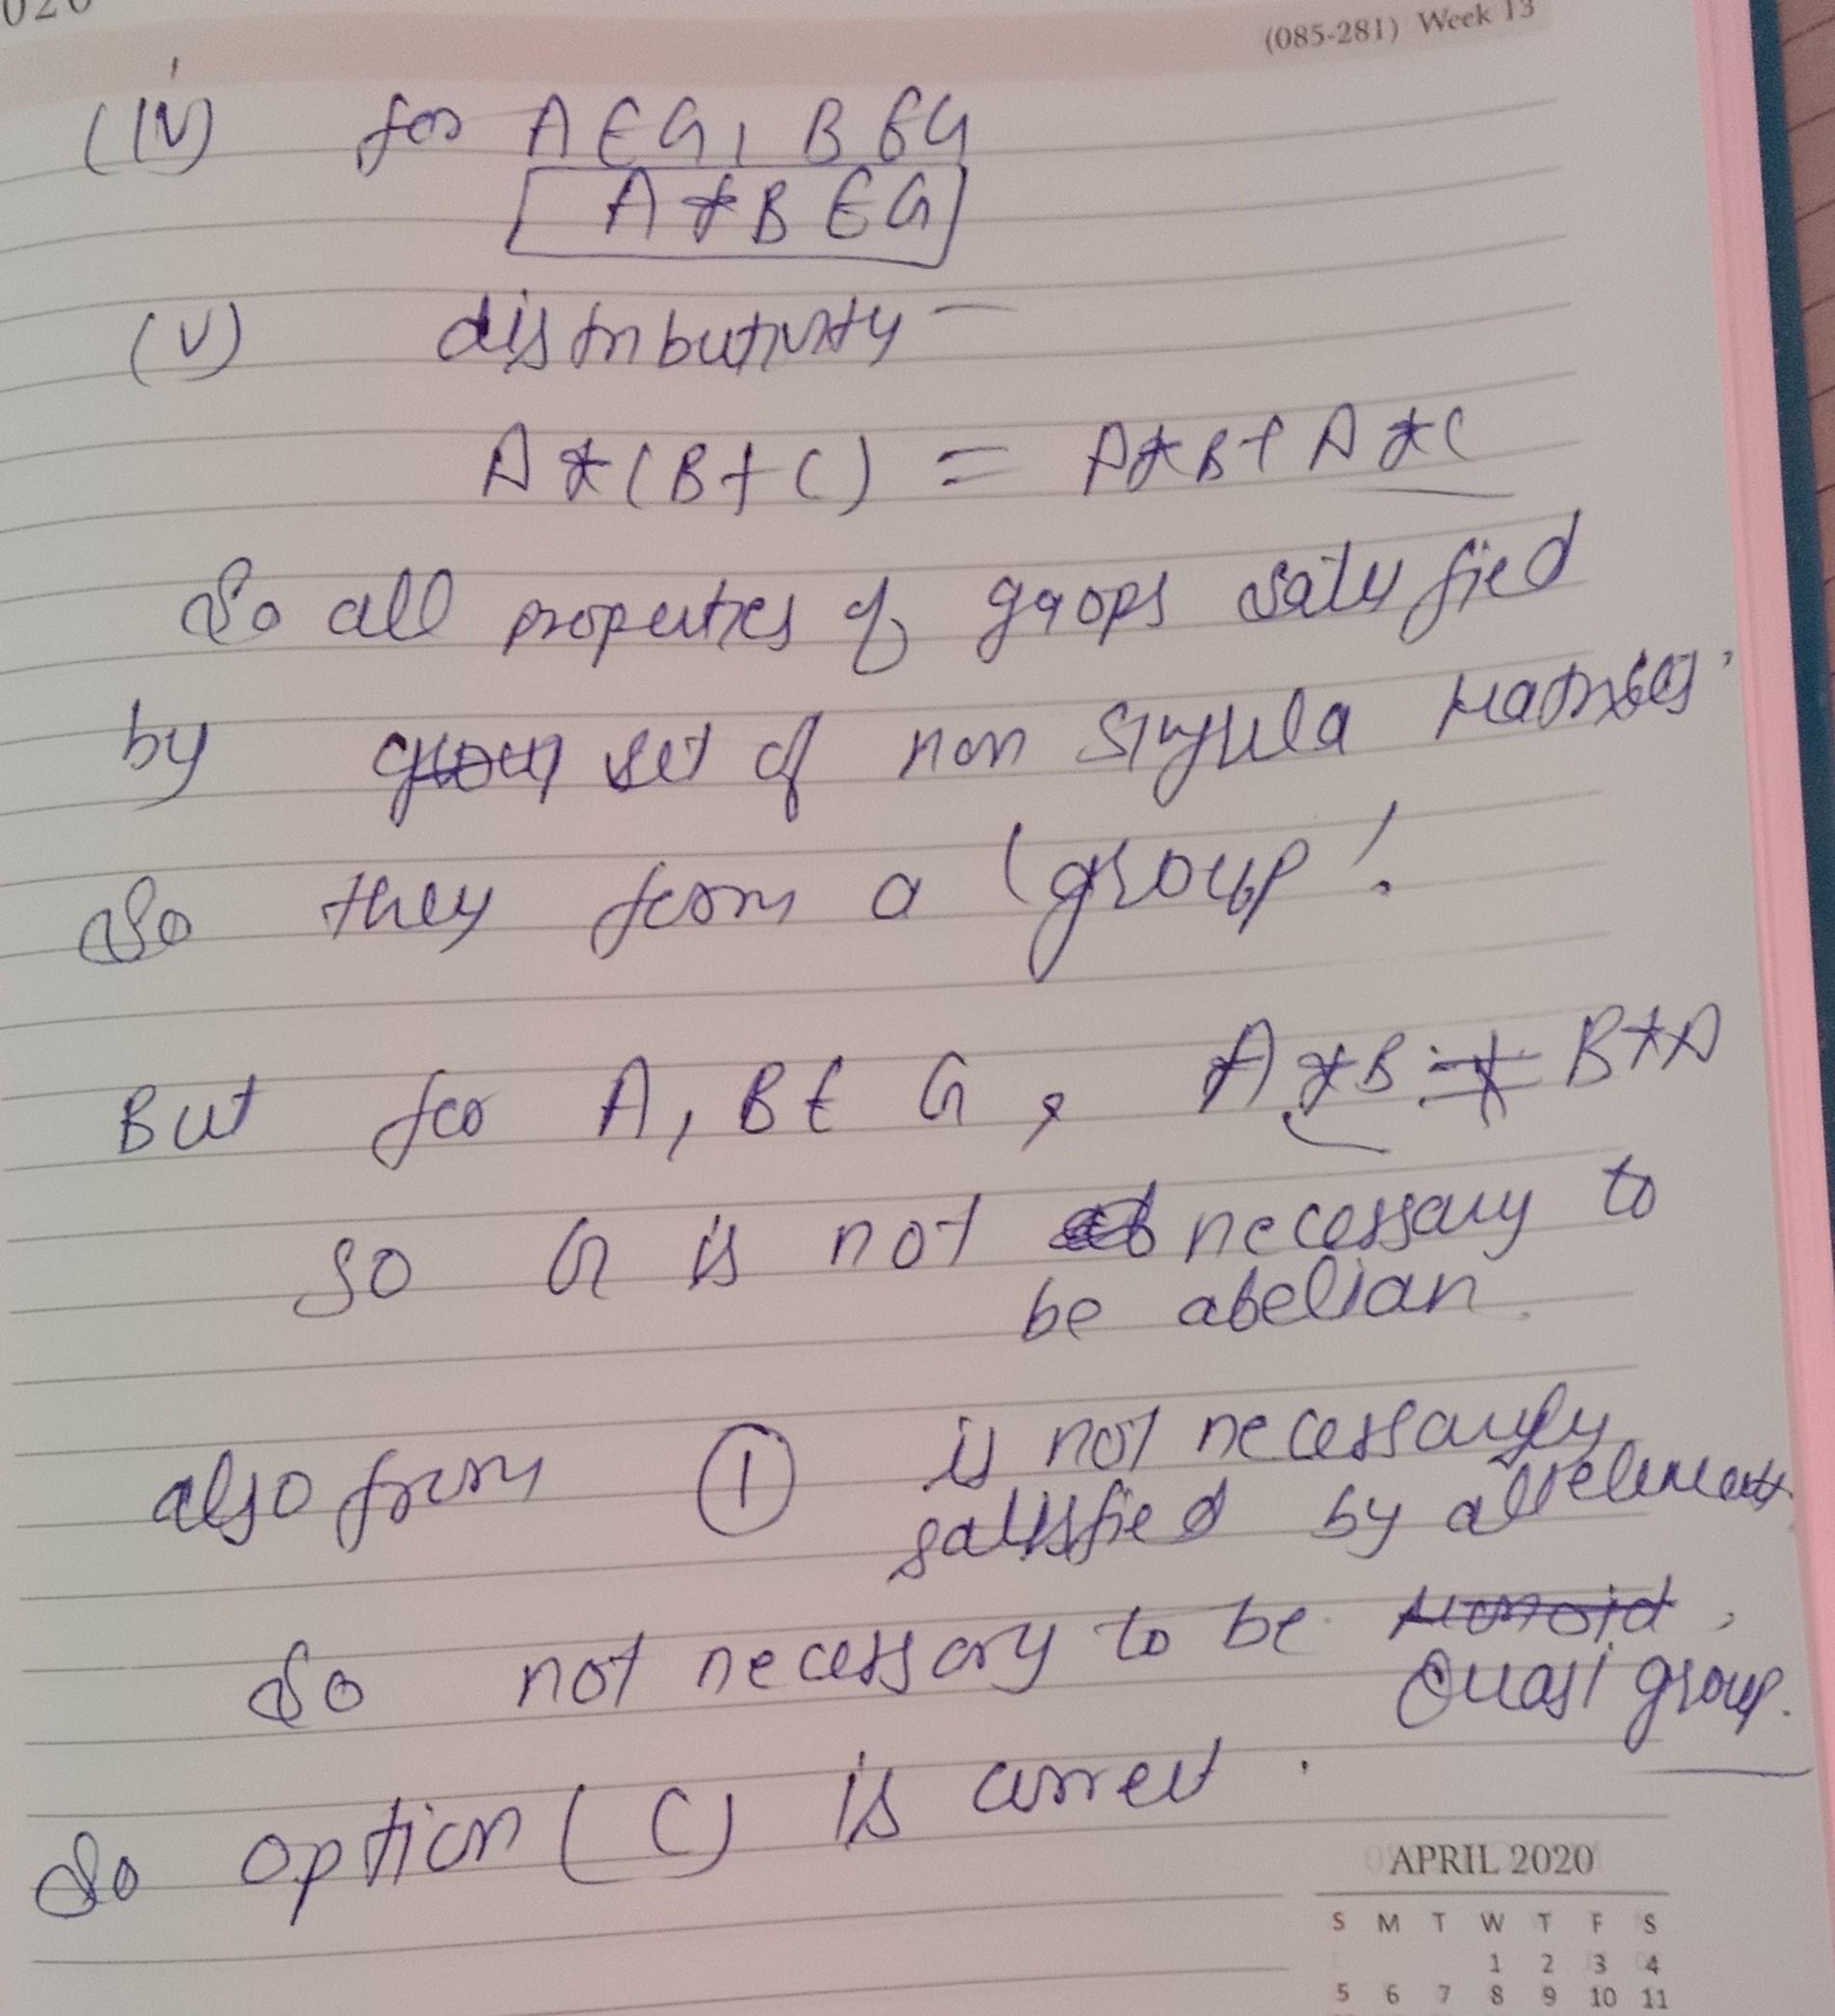 (085-281) Week 13
(iv) for A ∈ G, B ∈ G
A * B ∈ G
(v) distributivity -
A * (B + C) = A * B + A * C
So all properties of groops satisfied
by set of non singula matrices.
So they form a group.
But for A, B ∈ G, A * B ≠ B * A
so G is not necessary to
be abelian.
also from ① is not necessaryly
satisfied by all elements.
So not necessary to be monoid,
Quasi group.
So option (C) is correct.
APRIL 2020
S M T W T F S
1 2 3 4
5 6 7 8 9 10 11